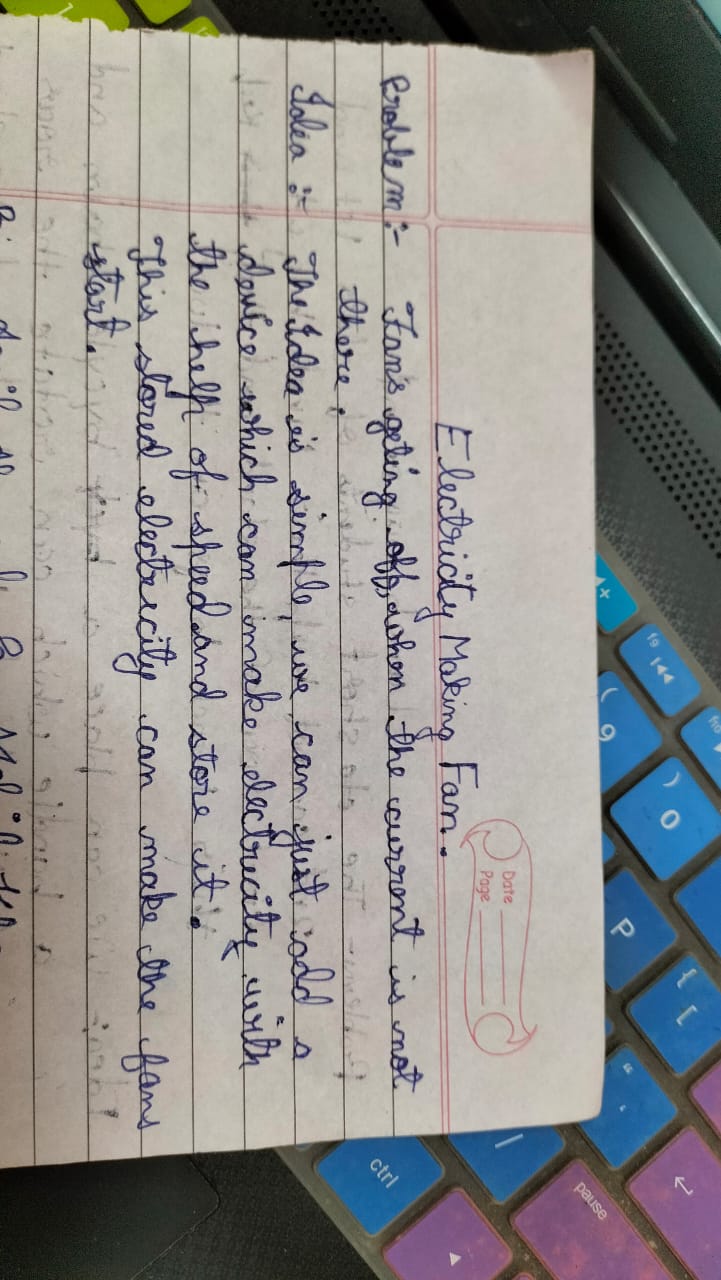 Date
Page
Electricity Making Fan.
Problem :- Fan's geting off, when the current is not
there.
Idea :- The Idea is simple, we can just add a
device which can make electricity with
the help of speed and store it.
This stored electricity can make the fans
start.
f9
144
f10
(
9
)
0
P
{
[
"
'
ctrl
pause